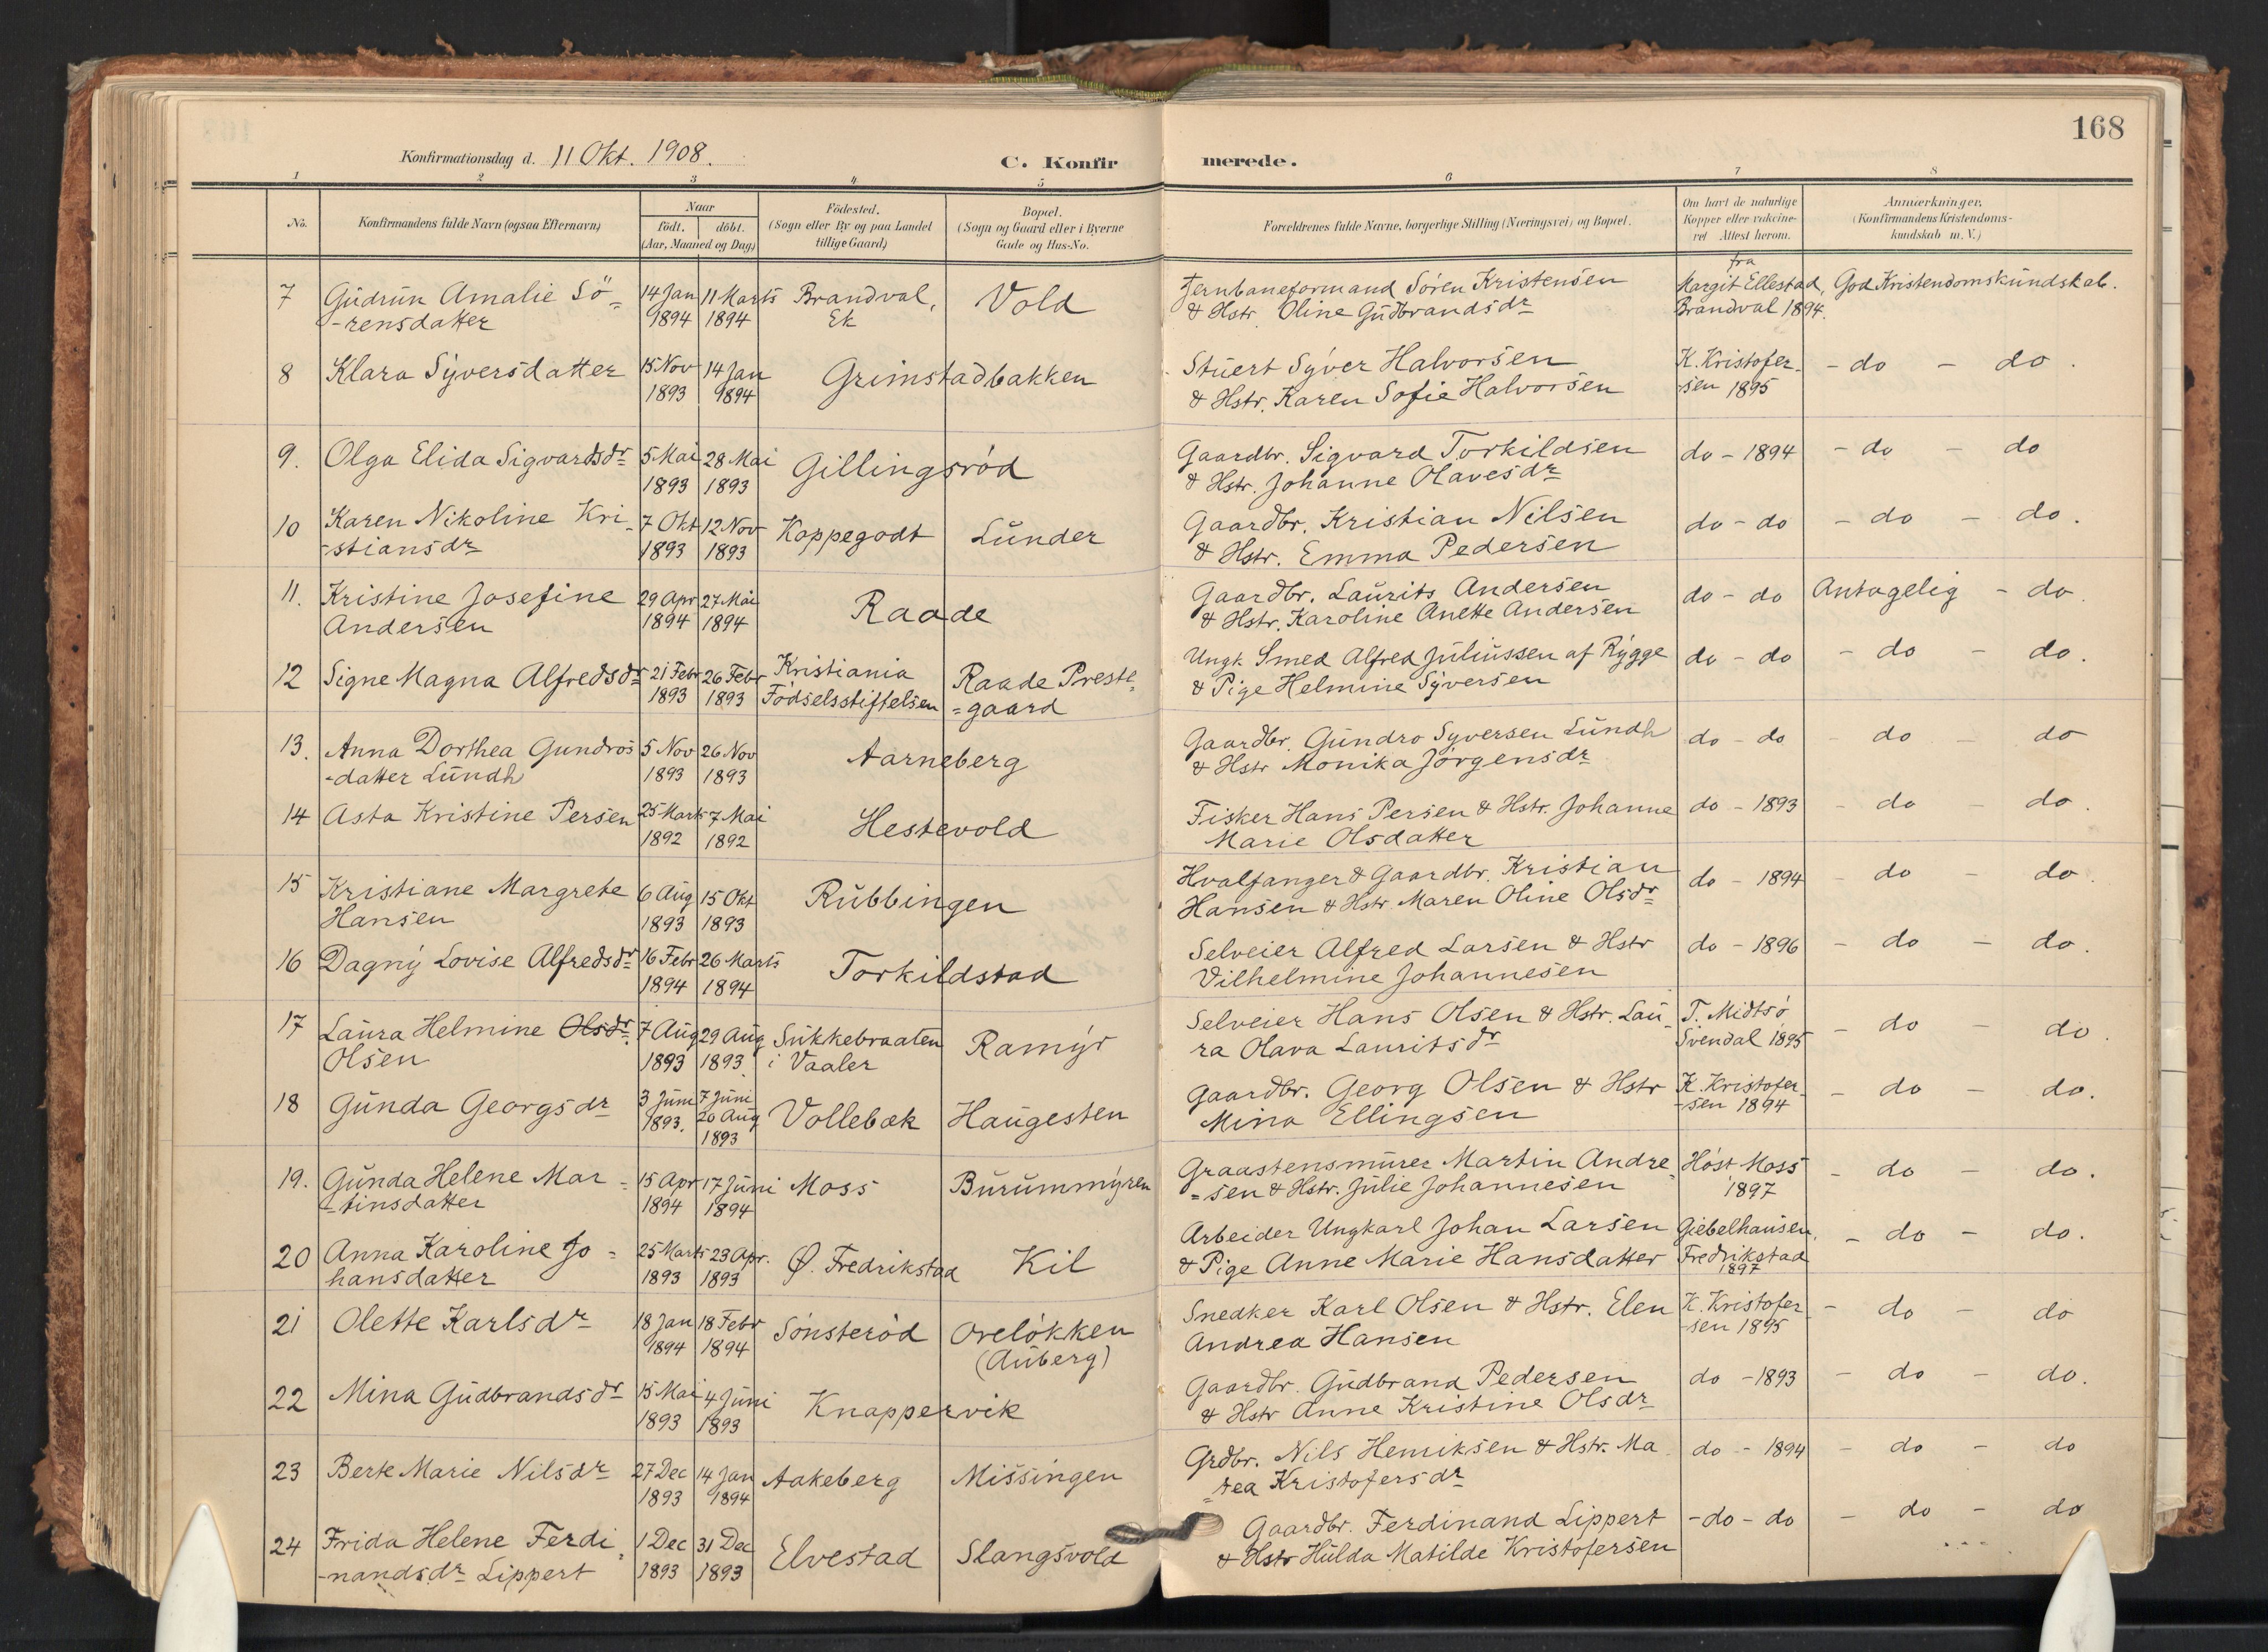 168
Konfirmationsdag d. 11 Okt. 1908.
C. Konfir merede.
1 2 3 4 5 6 7 8
No. Konfirmandens fulde Navn (ogsaa Efternavn) Naar født. døbt. (Aar, Maaned og Dag) Fødested. (Sogn eller By og paa Landet tillige Gaard) Bopæl. (Sogn og Gaard eller i Byerne Gade og Hus-No. Forældrenes fulde Navne, borgerlige Stilling (Næringsvei) og Bopæl. Om havt de naturlige Kopper eller vakcineret Attest herom. Anmærkninger. (Konfirmandens Kristendomskundskab m. V.)
7 Gudrun Amalie Sö- 14 Jan 11 Marts Brandval, Vold Jernbaneformand Sören Kristensen fra Margit Ellestad, God Kristendomskundskab.
-rensdatter 1894 1894 Ek & Hstr. Oline Gudbrandsdr Brandval 1894.
8 Klara Syversdatter 15 Nov 14 Jan Grimstadbakken Stuert Syver Halvorsen K. Kristofer- - do - do.
1893 9894 & Hstr. Karen Sofie Halvorsen -sen 1895
9. Olga Elida Sigvardsdr 5 Mai 28 Mai Gillingsröd Gaardbr. Sigvard Torkildsen do - 1894 - do - do
1893 1893 & Hstr. Johanne Olavesdr
10 Karen Nikoline Kri- 7 Okt 12 Nov Koppegodt Lunder Gaardbr. Kristian Nilsen do - do - do - do.
-stiansdr 1893 1893 & Hstr. Emma Pedersen
11. Kristine Josefine 29 Apr 27 Mai Raade Gaardbr. Laurits Andersen do - do Antagelig - do.
Andersen 1894 1894 & Hstr. Karoline Anette Andersen
12 Signe Magna Alfredsdr 21 Febr 26 Febr Kristiania Raade Preste- Ungk. Smed Alfred Juliussen af Rygge do - do - do - do.
1893 1893 Födselsstiftelsen =gaard & Pige Helmine Syversen
13. Anna Dorthea Gundros 5 Nov 26 Nov Aarneberg Gaardbr. Gundro Syversen Lundh do - do - do - do
-datter Lundh 1893 1893 & Hstr Monika Jörgensdr
14 Asta Kristine Persen 25 Marts 7 Mai Hestevold Fisker Hans Persen & Hstr. Johanne do - 1893 - do - do.
1892 1892 Marie Olsdatter
15 Kristiane Margrete 6 Aug 15 Okt Rubbingen Hvalfanger & Gaardbr. Kristian do - 1894 - do - do.
Hansen 1893 1893 Hansen & Hstr. Maren Oline Olsdr
16 Dagny Lovise Alfredsdr 16 Febr 26 Marts Torkildstad Selveier Alfred Larsen & Hstr do - 1896 - do - do.
1894 1894 Vilhelmine Johannesen
17 Laura Helmine Olsdr 7 Aug 29 Aug Sukkebraaten Ramyr Selveier Hans Olsen & Hstr. Lau- T. Midtsö - do - do.
Olsen 1893 1893. i Vaaler ra Olava Lauritsdr Svendal 1895
18 Gunda Georgsdr 3 Juni 7 Juni Vollebæk Haugesten Gaardbr. Georg Olsen & Hstr K. Kristofer- - do - do.
1893. 20 Aug Mina Ellingsen -sen 1894
1893
19. Gunda Helene Mar- 15 Apr 17 Juni Moss Burummyren Graastensmurer Martin Andre- Höst Moss - do - do.
-tinsdatter 1894 1894 =sen & Hstr. Julie Johannesen 1897
20 Anna Karoline Jo- 25 Marts 23 Apr. Ø. Fredrikstad Kil Arbeider Ungkarl Johan Larsen Giebelhausen, - do - do.
hansdatter 1893 1893 & Pige Anne Marie Hansdatter Fredrikstad
1897
21 Olette Karlsdr 18 Jan 18 Febr Sönsteröd Orelökken Snedker Karl Olsen & Hstr. Elen K. Kristofer- - do - do
1894 1894 (Auberg) Andrea Hansen -sen 1895
22 Mina Gudbrandsdr 15 Mai 4 Juni Knappervik Gaardbr. Gudbrand Pedersen do - 1893 - do - do.
1893 1893 & Hstr Anne Kristine Olsdr
23 Berte Marie Nilsdr 27 Dec 14 Jan Aakeberg Missingen Grdbr. Nils Henriksen & Hstr. Ma- do - 1894 - do - do
1893 1894 =tea Kristofersdr
24 Frida Helene Ferdi- 1 Dec 31 Dec Elvestad Slangsvold Gaardbr. Ferdinand Lippert - do - do - do - do
-nandsdr Lippert 1893 1893 & Hstr Hulda Matilde Kristofersen